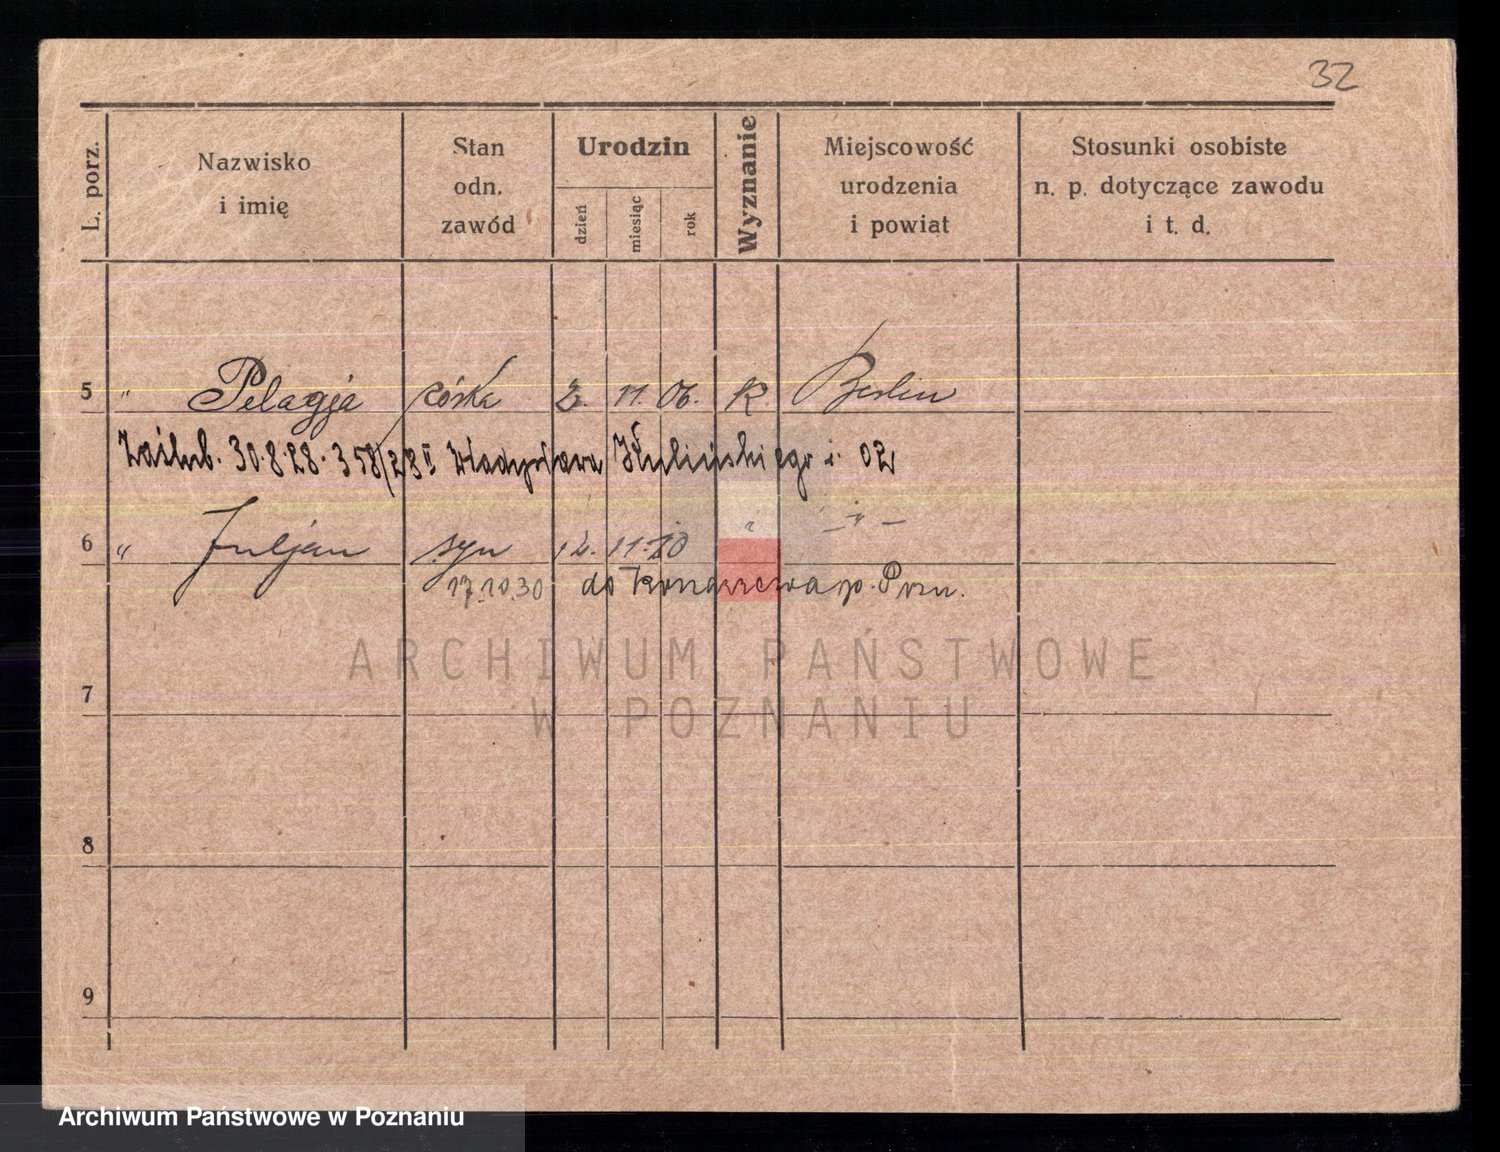 32
L. porz.
Nazwisko
i imię
Stan
odn.
zawód
Urodzin
dzień
miesiąc
rok
Wyznanie
Miejscowość
urodzenia
i powiat
Stosunki osobiste
n. p. dotyczące zawodu
i t. d.
5 " Pelagja córka 2. 11. 06. k Berlin
Zaślub. 30.8.28. 358/28 II Władysława i. 02
6 " Juljan syn 12. 11. 10 " — " —
17.10.30 do Konarzewa p. Pozn.
ARCHIWUM PAŃSTWOWE
W POZNANIU
7
8
9
Archiwum Państwowe w Poznaniu